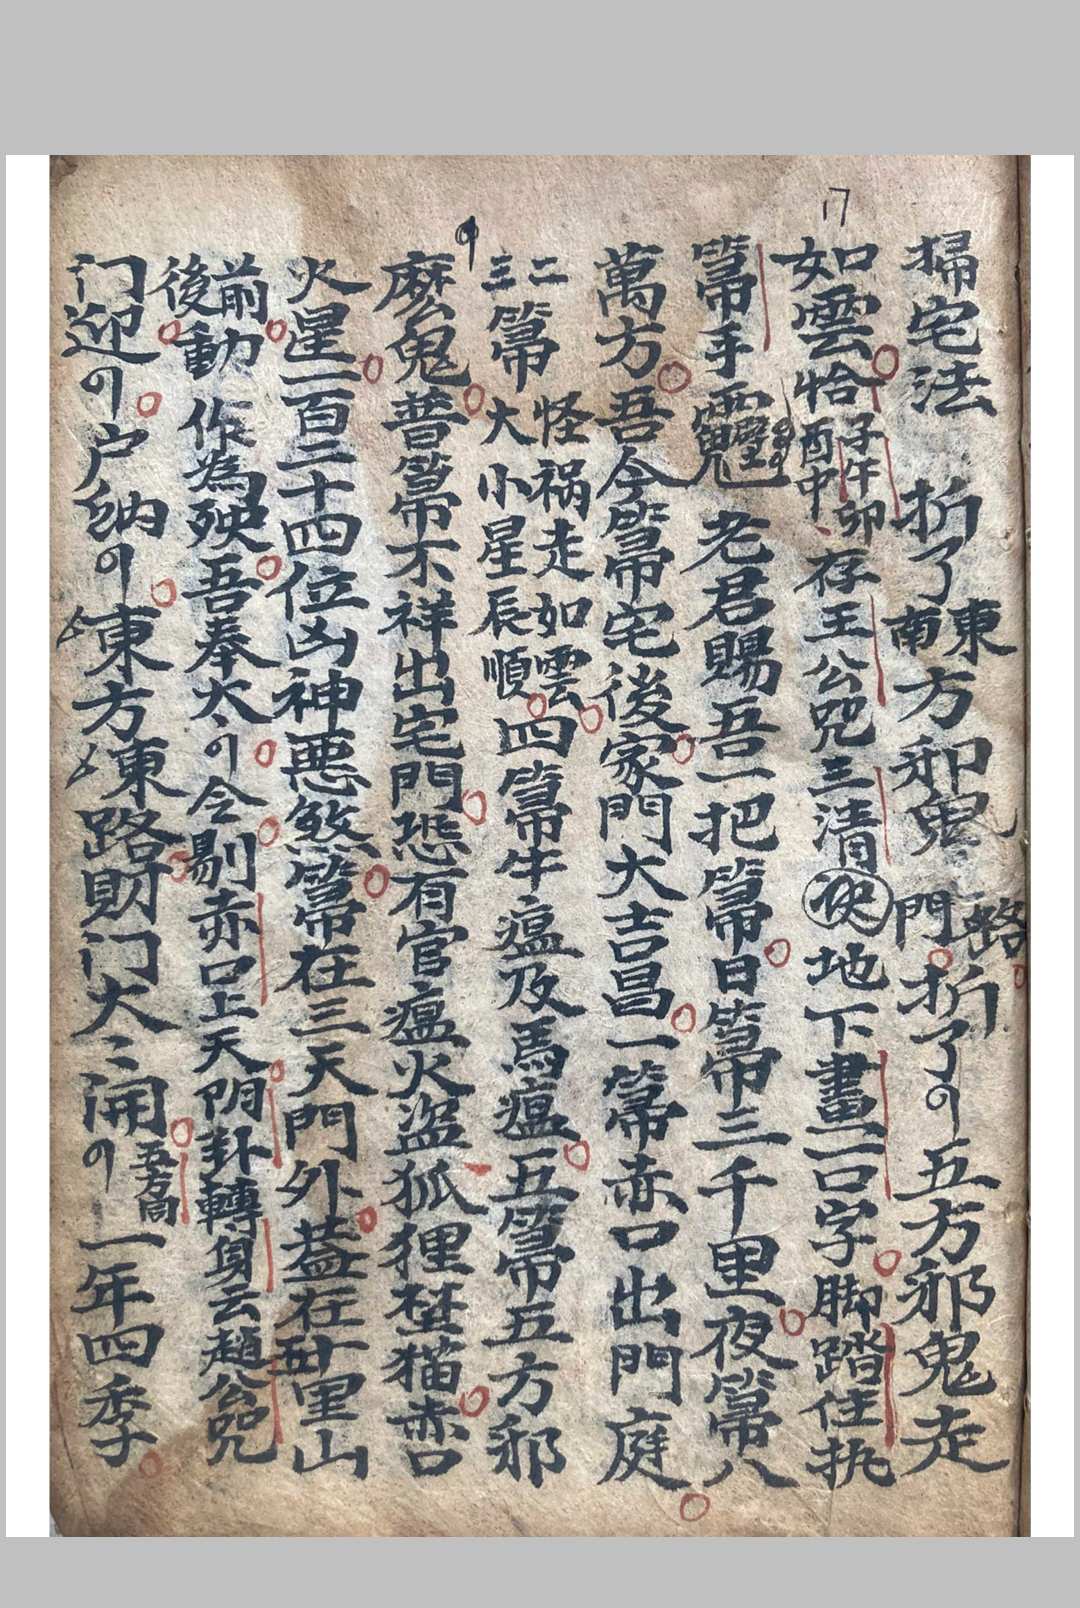 17
掃宅法 折了東南方邪鬼路門折了的五方邪鬼走
如雲恰子午卯酉中存王公咒三清地下畫一口字脚踏住执
箒手 老君賜吾一把箒日箒三千里夜箒八
萬方吾今箒宅後家門大吉昌一箒赤口出門庭
二三箒怪祸走如雲大小星辰順四箒牛瘟及馬瘟五箒五方邪
麽鬼普箒不祥出宅門恐有官瘟火盗狐狸猫赤口
火星一百二十四位凶神悪煞箒在三天門外里山
前後動作為殃吾奉大令剔赤口上天門卦轉身云趙公咒
门迎的户纳的東方東路財门大開的五方同一年四季